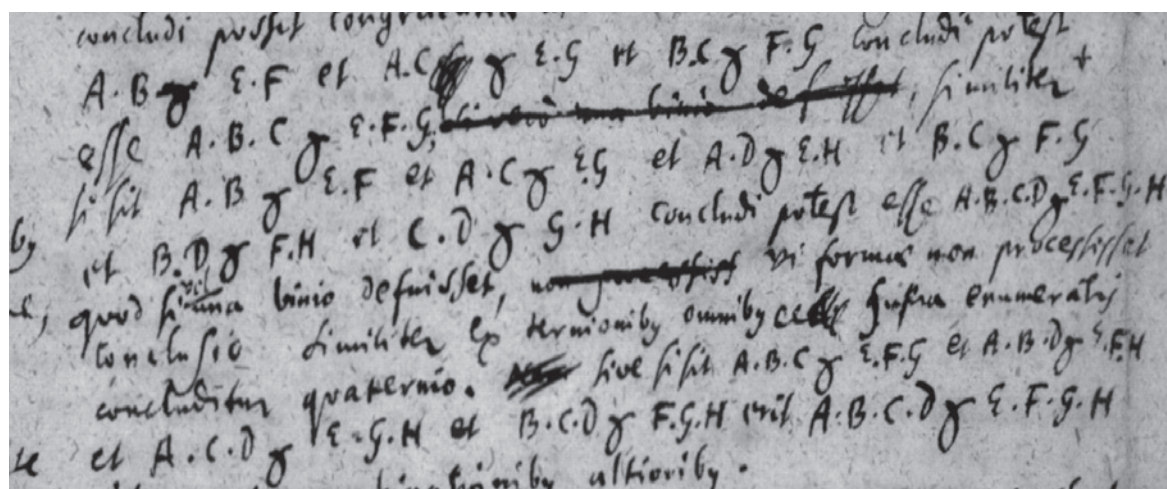 concludi posset
A.B ɣ E.F et A.C ɣ E.G et B.C ɣ F.G concludi potest
esse A.B.C ɣ E.F.G, similiter +
si sit A.B ɣ E.F et A.C ɣ E.G et A.D ɣ E.H et B.C ɣ F.G
et B.D ɣ F.H et C.D ɣ G.H concludi potest esse A.B.C.D ɣ E.F.G.H
quod si vel una binio defuisset, vi formae non processisset
conclusio similiter ex ternionibꝫ omnibꝫ enumeratis
concluditur quaternio. sive si sit A.B.C ɣ E.F.G et A.B.D ɣ E.F.H
et A.C.D ɣ E.G.H et B.C.D ɣ F.G.H erit A.B.C.D ɣ E.F.G.H
altioribꝫ.